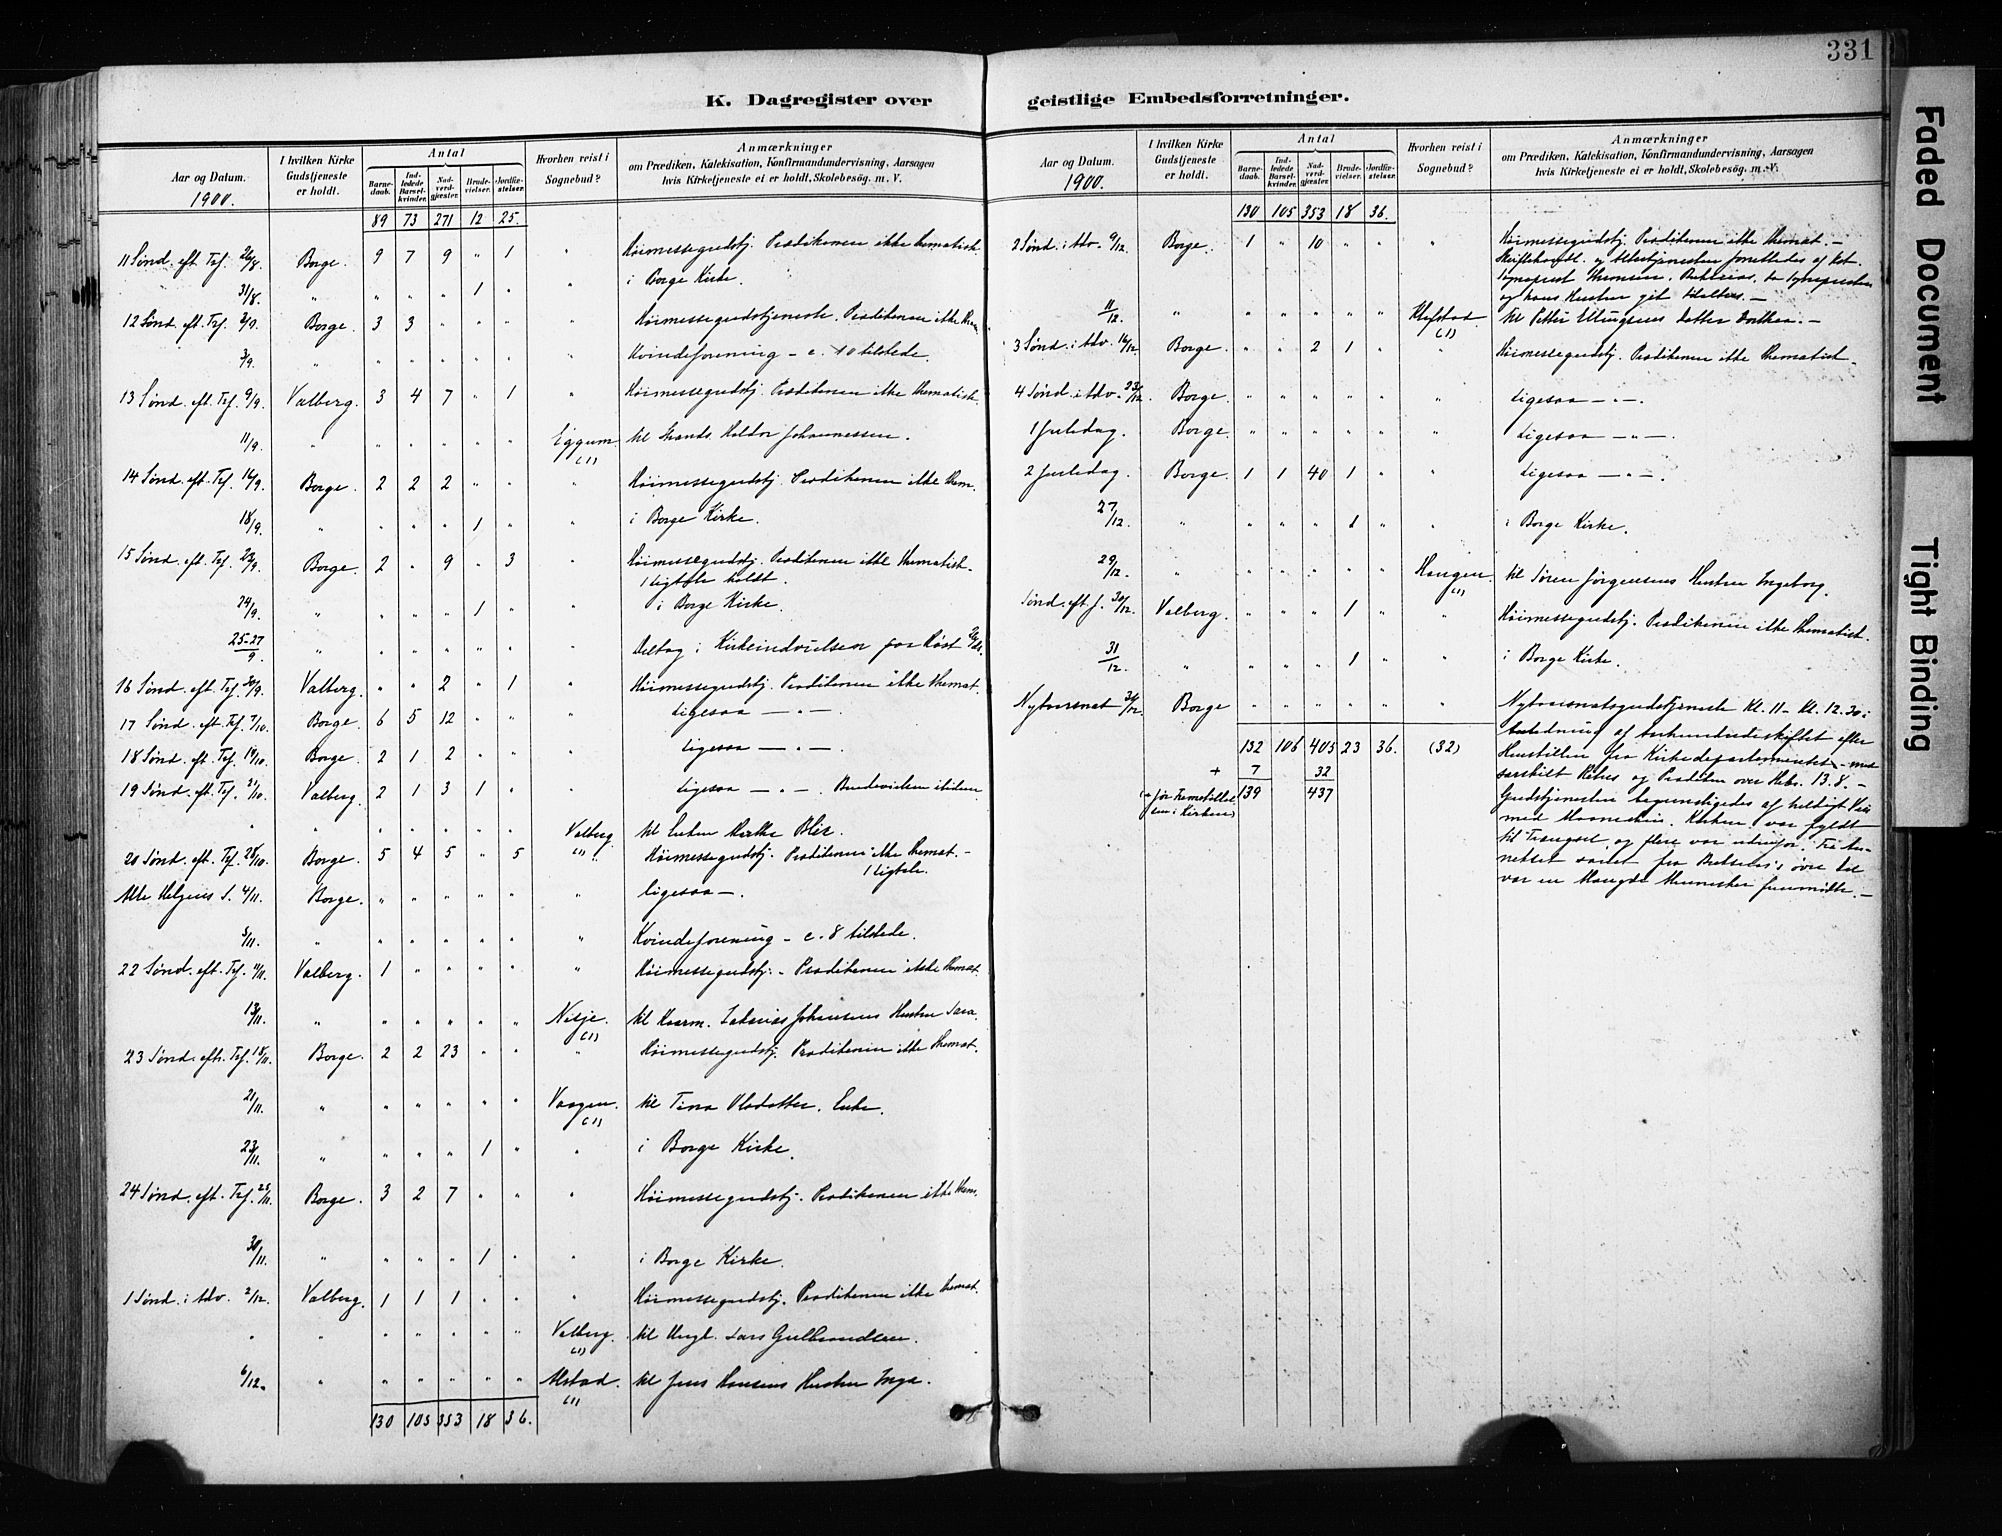 331
K. Dagregister over
geistlige Embedsforretninger.
Aar og Datum.
1900.
I hvilken Kirke Gudstjeneste er holdt.
Antal
Barnedaab.
Indledede Barselkvinder.
Nadverdgjæster.
Brudevielser.
Jordfæstelser.
Hvorhen reist i Sognebud?
Anmærkninger
om Prædiken, Katekisation, Konfirmandundervisning, Aarsagen
hvis Kirketjeneste ei er holdt, Skolebesøg. m. V.
89 73 271 12 25.
11 Sønd. eft. Tref. 26/8. Borge. 9 7 9 " 1 " Høimessegudstj. Prædikenen ikke thematisk.
31/8. " " " " 1 " " i Borge Kirke.
12 Sønd. eft. Tref. 2/9. Borge. 3 3 " " " " Høimessegudstjeneste. Prædikenen ikke them.
3/9. " " " " " " " Kvindeforening – c. 10 tilstede.
13 Sønd. eft. Tref. 9/9. Valberg. 3 4 7 " 1 " Høimessegudstj. Prædikenen ikke thematisk.
11/9. " " " " " " Eggum (1) til Haldor Johannessen.
14 Sønd. eft. Tref. 16/9. Borge. 2 2 2 " " " Høimessegudstj. Prædikenen ikke them.
18/9. " " " " 1 " " i Borge Kirke.
15 Sønd. eft. Tref. 23/9. Borge. 2 " 9 " 3 " Høimessegudstj. Prædikenen ikke thematisk.
1 Ligtale holdt.
24/9. " " " " 1 " " i Borge Kirke.
25-27/9. " " " " " " " Deltog i Kirkeindvielsen paa Røst
16 Sønd. eft. Tref. 30/9. Valberg. " " 2 " 1 " Høimessegudstj. Prædikenen ikke themat.
17 Sønd. eft. Tref. 7/10. Borge. 6 5 12 " " " Ligesaa – " –
18 Sønd. eft. Tref. 14/10. Borge. 2 1 2 " " Ligesaa – " –
19 Sønd. eft. Tref. 21/10. Valberg. 2 1 3 1 " Ligesaa – " –. Brudevielsen ibidem
" " " " " " " Valberg (1) til Enken Marthe
20 Sønd. eft. Tref. 28/10. Borge. 5 4 5 " 5 " Høimessegudstj. Prædikenen ikke themat. –
1 Ligtale.
Alle Helgens S. 4/11. Borge. " " " " " " Ligesaa –.
5/11. " " " " " " " Kvindeforening – c. 8 tilstede.
22 Sønd. eft. Tref. 11/11. Valberg. 1 " " " " " Høimessegudstj. – Prædikenen ikke themat.
13/11. " " " " " " (1) til Johansens Hustru Sara.
23 Sønd. eft. Tref. 18/11. Borge. 2 2 23 " " " Høimessegudstj. Prædikenen ikke themat.
21/11. " " " " " " Vaagen. (1) til Tina Olsdatter. Enke.
23/11. " " " " 1 " " i Borge Kirke.
24 Sønd. eft. Tref. 25/11. Borge. 3 2 7 " " " Høimessegudstj. Prædikenen ikke them.
30/11. " " " " 1 " " i Borge Kirke.
1 Sønd. i Adv. 2/12. Valberg. 1 1 1 " " " Høimessegudstj. Prædikenen ikke themat.
" " " " " " " Valberg. (1) til Ungk. Lars Gulbrandsen.
6/12. " " " " " " Alstad. (1) til Jens Hansens Hustru Inga.
130 105 353 18 36.
Aar og Datum.
1900.
I hvilken Kirke Gudstjeneste er holdt.
Antal
Barnedaab.
Indledede Barselkvinder.
Nadverdgjæster.
Brudevielser.
Jordfæstelser.
Hvorhen reist i Sognebud?
Anmærkninger
om Prædiken, Katekisation, Konfirmandundervisning, Aarsagen
hvis Kirketjeneste ei er holdt, Skolebesøg. m. V.
130 105 353 18 36.
2 Sønd. i Adv. 9/12. Borge. 1 " 10 " " " Høimessegudstj. Prædikenen ikke themat. –
Skriftehandl. og Altertjenesten forrettedes af
Sogneprest da Sognepresten
og hans Hustru gik til –
11/12. " " " " " " (1) til Petter Ellingsens Datter Dorthea. –
3 Sønd. i Adv. 16/12. Borge. " " 2 1 " " Høimessegudstj. Prædikenen ikke thematisk.
4 Sønd. i Adv. 23/12. Borge. " " " " " " Ligesaa – " –.
1 Juledag. Borge. " " " " " " Ligesaa – " –.
2 Juledag. Borge. 1 1 40 1 " " Ligesaa – " –.
27/12. " " " " 1 " " i Borge Kirke.
29/12. " " " " " " Haugen. (1) til Søren Jørgensens Hustru Ingeborg.
Sønd. eft. J. 30/12. Valberg. " " " 1 " " Høimessegudstj. Prædikenen ikke thematisk.
31/12. " " " " 1 " " i Borge Kirke.
Nytaarsnat 31/12. Borge " " " " " " Nytaarsnatsgudstjeneste Kl. 11 – Kl. 12.30 i
Anledning af Aarhundredeskiftet efter
132 106 405 23 36. (32) Henstillen fra Kirkedepartementet – med
+ 7 32 særskilt og Prædiken over Hebr. 13.8. –
(+ før Fremstillelsen i Kirken) 139 437 Gudstjenesten begunstigedes af heldigt Veir
med Maaneskin. Kirken var fyldt
til Trængsel og flere var udenfor.
fra øvre Del
var en Mængde Mennesker fremmødte. –
Faded Document
Tight Binding